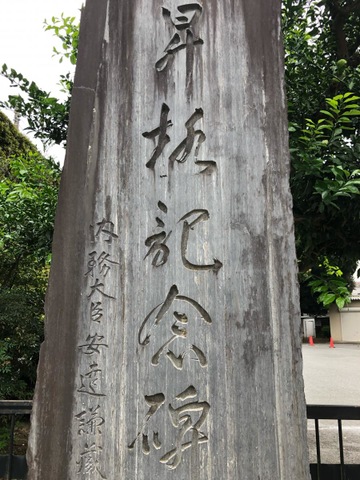 昇格記念碑
内務大臣安達謙藏